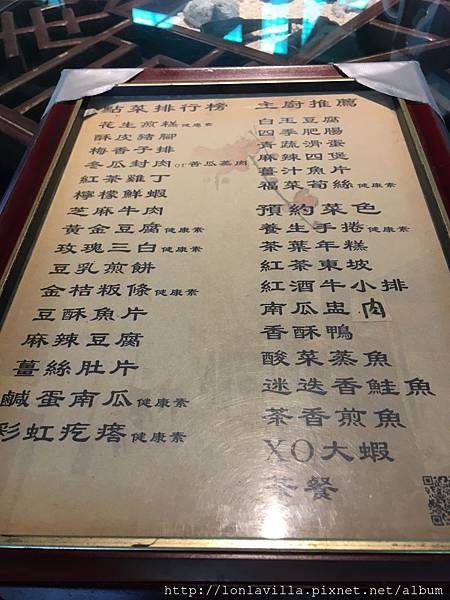 點菜排行榜
花生煎糕健康素
酥皮豬腳
梅香子排
冬瓜封肉or苦瓜蒸肉
紅茶雞丁
檸檬鮮蝦
芝麻牛肉
黃金豆腐健康素
玫瑰三白健康素
豆乳煎餅
金桔粄條健康素
豆酥魚片
麻辣豆腐
薑絲肚片
鹹蛋南瓜健康素
彩虹疙瘩健康素
主廚推薦
白玉豆腐
四季肥腸
青蔬滑蛋
麻辣四煲
薑汁魚片
福菜筍絲健康素
預約菜色
養生手捲健康素
茶葉年糕
紅茶東坡
紅酒牛小排
南瓜盅肉
香酥鴨
酸菜蒸魚
迷迭香鮭魚
茶香煎魚
XO大蝦
茶餐
http://lonlavilla.pixnet.net/album